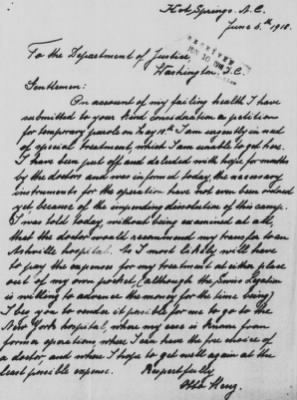 Hot Springs, N.C.
June 5.th 1918.
To the Department of Justice,
JUN 10 1918
Washington D.C.
Gentlemen:
On account of my failing health I have
submitted to your kind consideration a petition
for temporary parole on May 18.th I am urgently in need
of special treatment, which I am unable to get here.
I have been put off and deluded with hope for months
by the doctors and was informed today, the necessary
instruments for the operation have not even been ordered
yet because of the impending dissolution of this camp.
I was told today, without being examined at all,
that the doctor would recommend my transfer to an
Asheville hospital. So I most likely will have
to pay the expenses for my treatment at either place
out of my own pocket, (although the Swiss Legation
is willing to advance the money for the time being)
I beg you to render it possible for me to go to the
New York hospital, where my case is known from
former operations, where I can have the free choice of
a doctor and where I hope to get well again at the
least possible expense. Respectfully
Otto